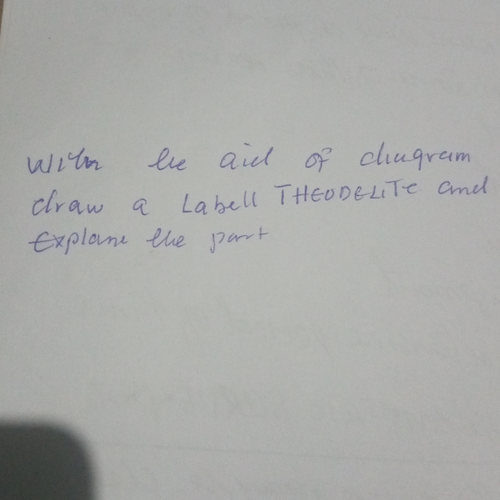 With the aid of diagram
draw a Labell THEODELITE and
Explane the part